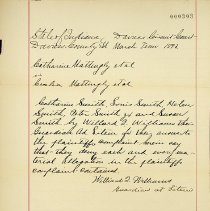 000393
State of Indiana Daviess Circuit Court
Daviess County SS March Term 1892
Catharine Mattingly et al
vs
Mattingly et al
Catharine Smith, Smith, Helen
Smith, Peter Smith and Susan
Smith by Willard Z. Williams their
Guardian Ad Litem for their answer to
the plaintiffs complaint herein say
that they deny each and every mat-
erial allegation in the plaintiffs
complaint contained.
Willard Z Williams
Guardian ad Litem